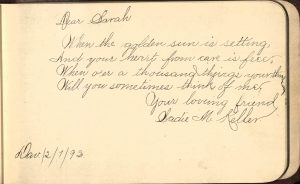 Dear Sarah
When the golden sun is setting,
And your heart from care is free,
When o'er a thousand things your thinking
Will you sometimes think of me.
Your loving friend
Sadie M. Keller
Dav. 12/1/93.